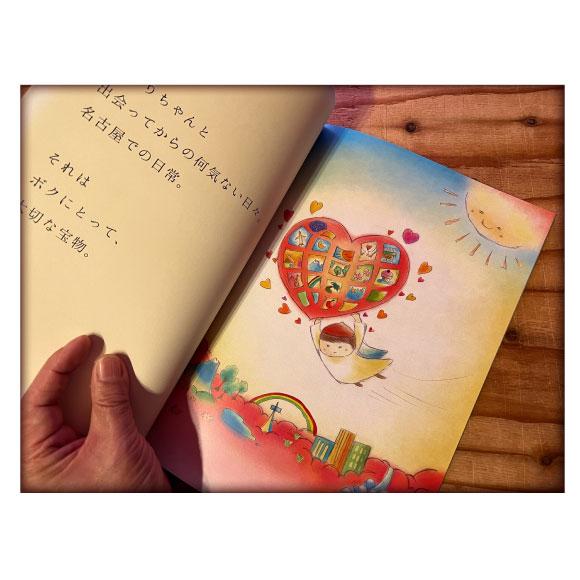 りちゃんと
出会ってからの何気ない日々。
名古屋での日常。
それは
ボクにとって、
大切な宝物。